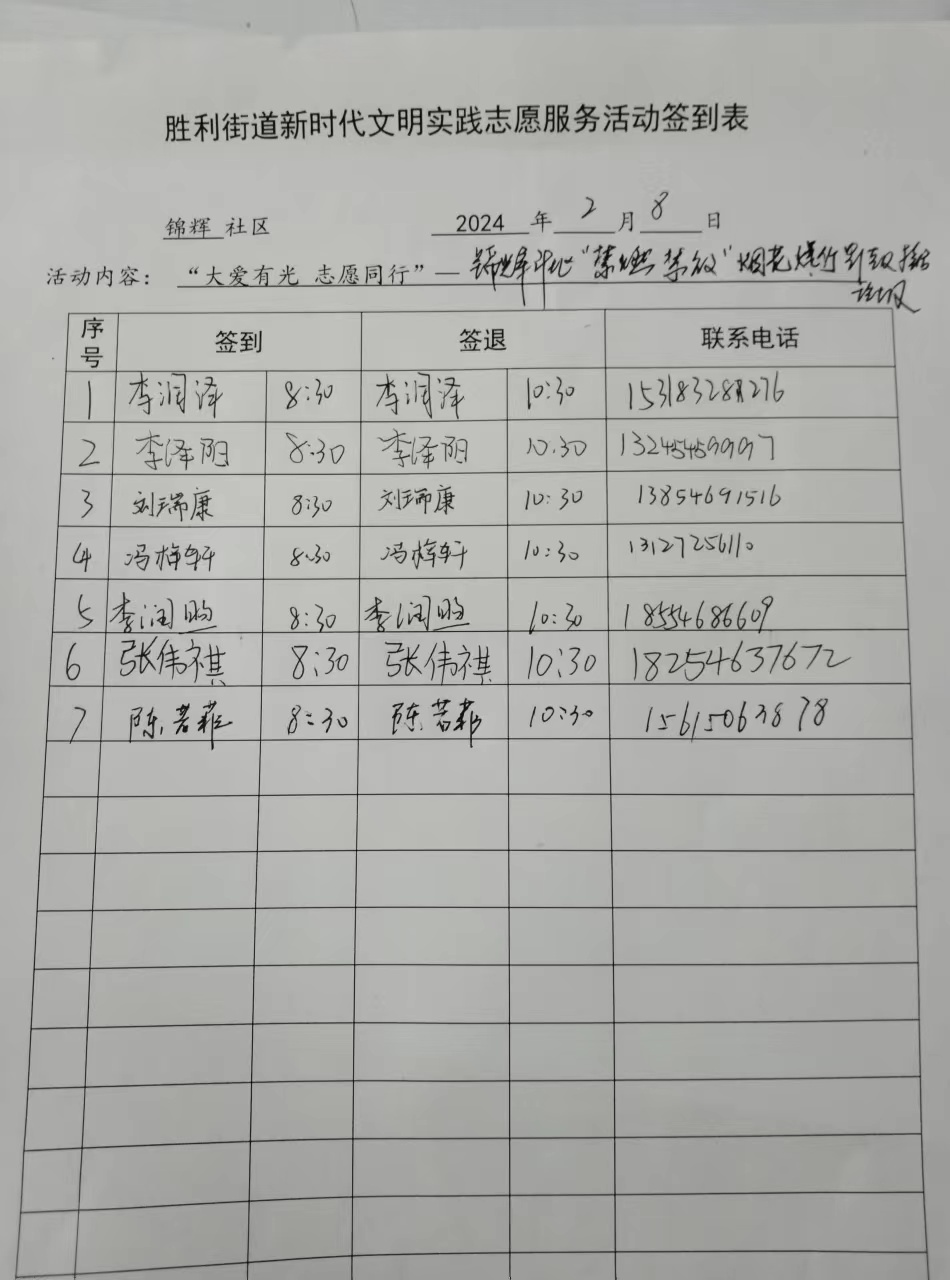 胜利街道新时代文明实践志愿服务活动签到表
锦辉 社区 2024 年 2 月 8 日
活动内容： “大爱有光 志愿同行”— “禁燃禁放”烟花爆竹
序号 签到 签退 联系电话
1 李润泽 8:30 李润泽 10:30
2 李泽阳 8:30 李泽阳 10:30 13245459997
3 刘瑞康 8:30 刘瑞康 10:30 13854691516
4 冯梓轩 8:30 冯梓轩 10:30 13127256110
5 李润 8:30 李润 10:30 18554686609
6 张伟祺 8:30 张伟祺 10:30 18254637672
7 陈若菲 8:30 陈若菲 10:30 15615063878